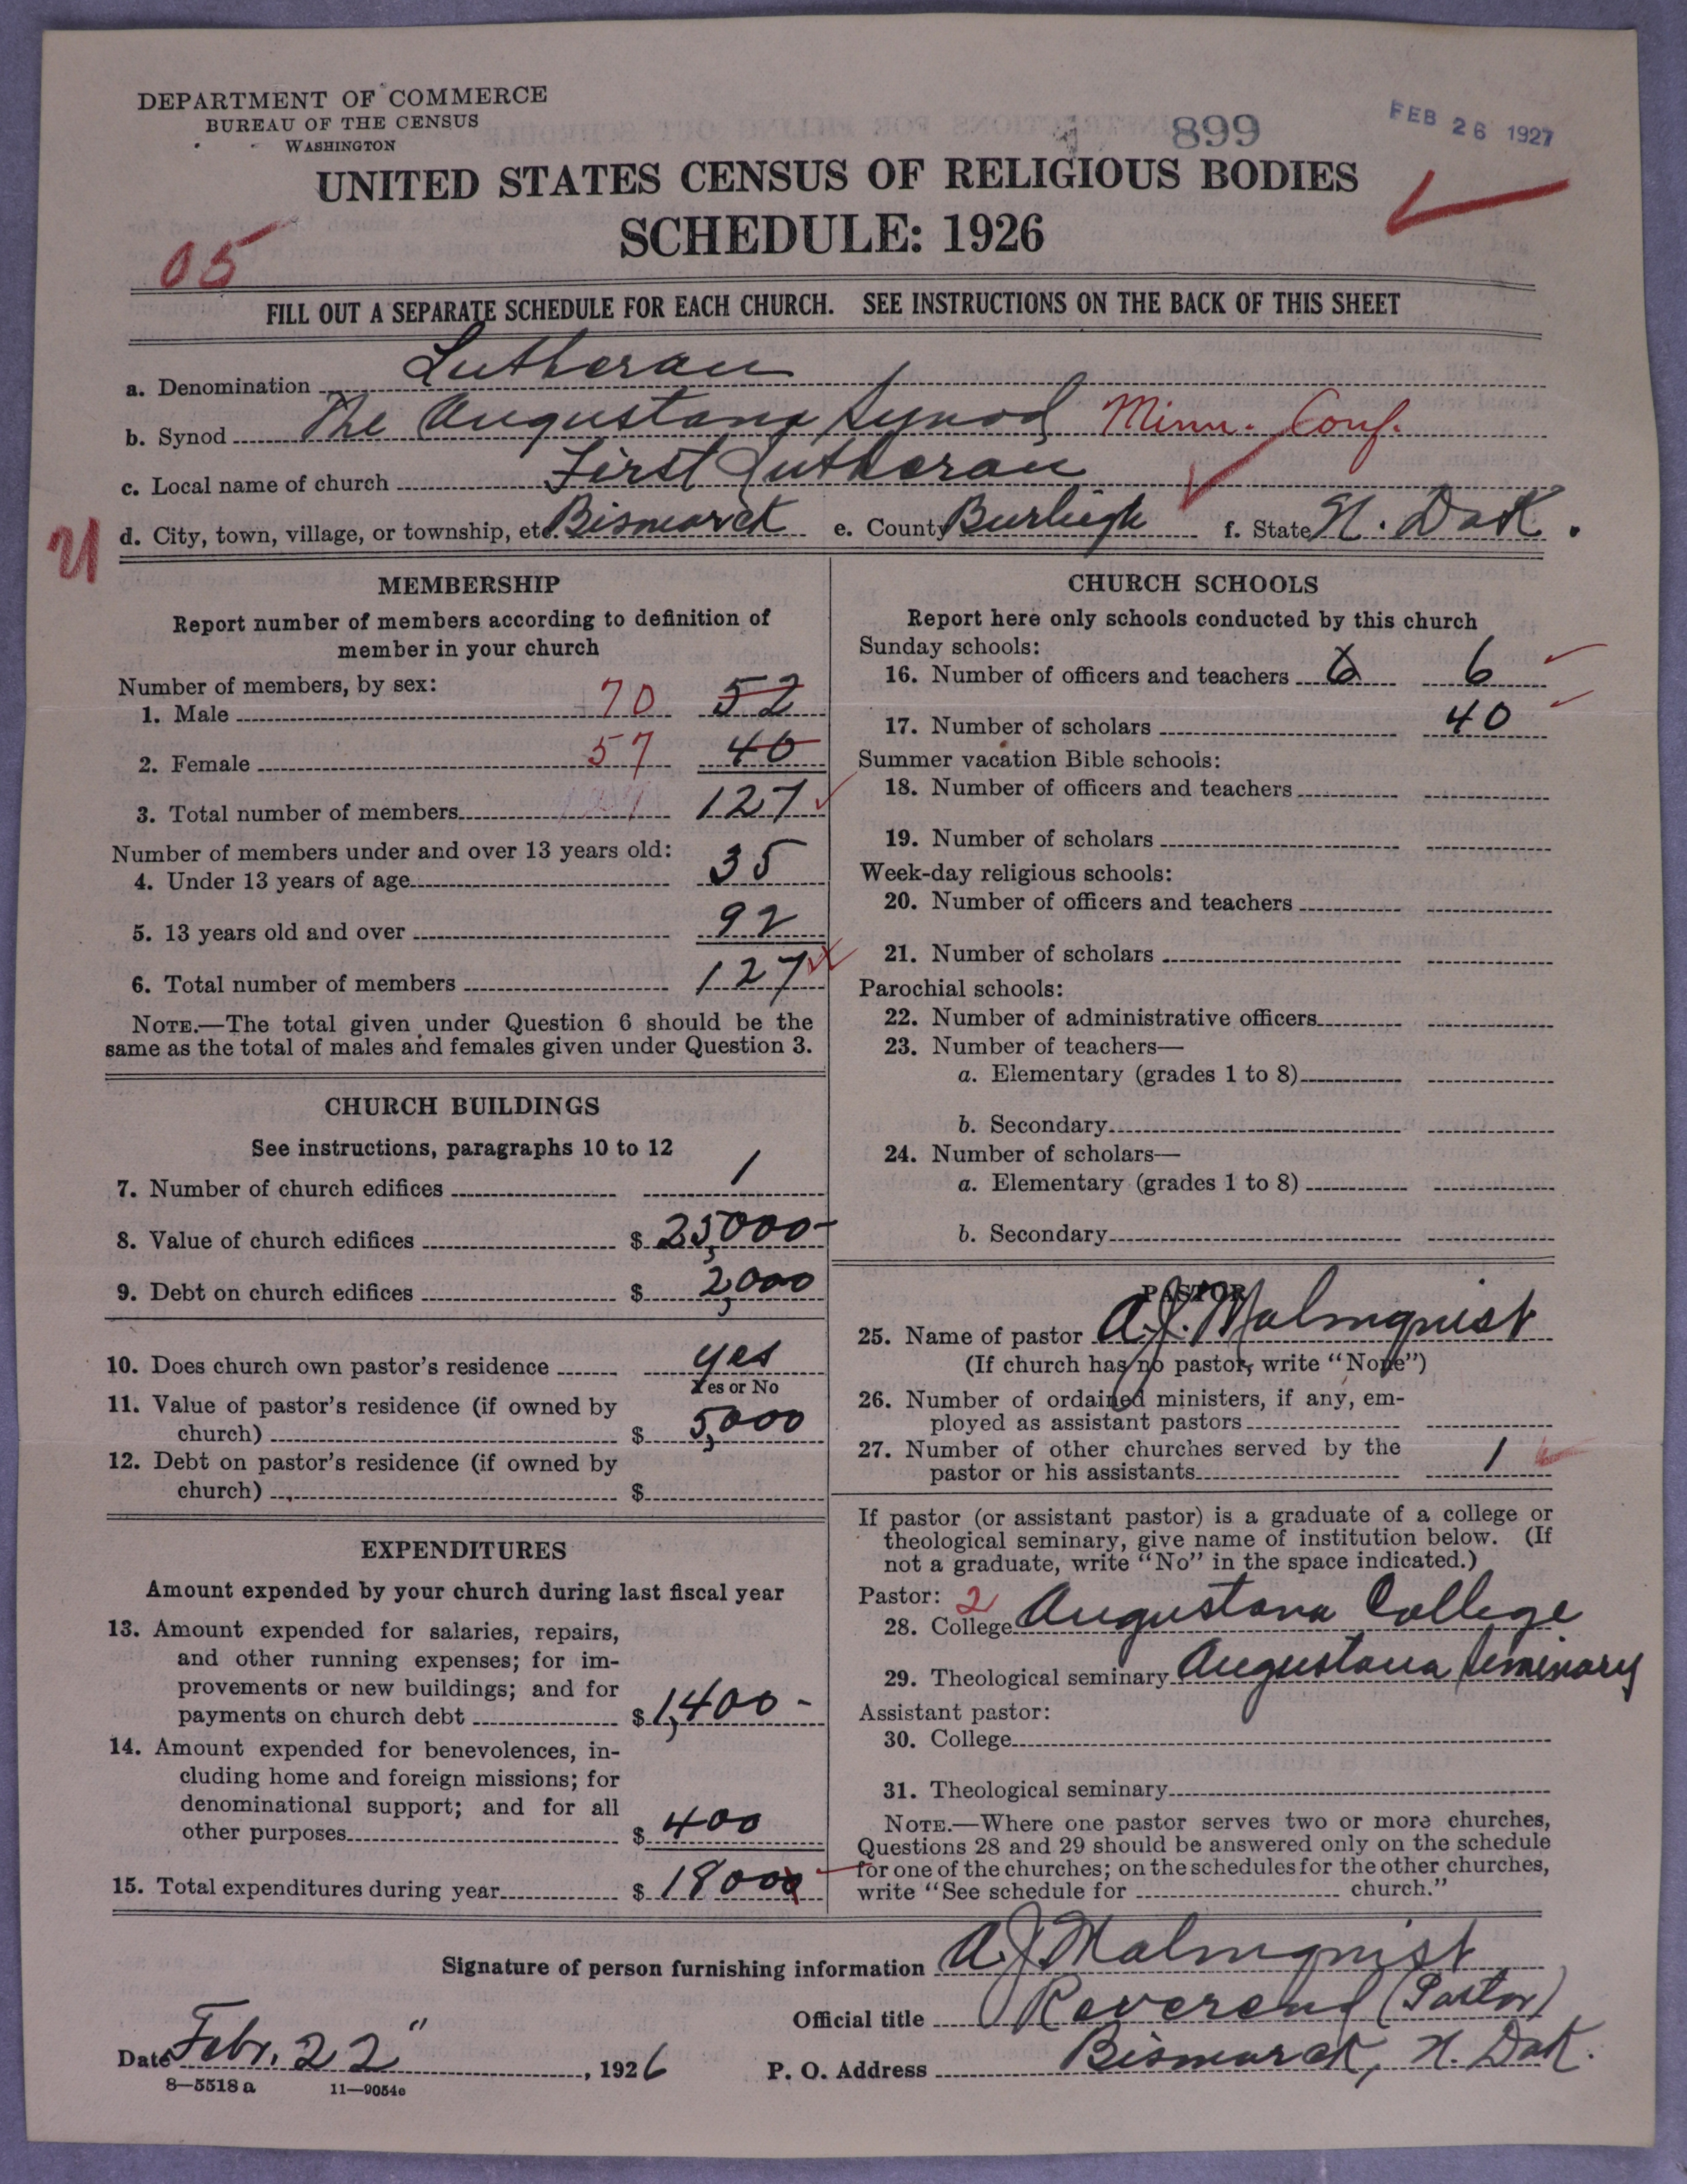 DEPARTMENT OF COMMERCE
BUREAU OF THE CENSUS
WASHINGTON
899
FEB 26 1927
UNITED STATES CENSUS OF RELIGIOUS BODIES
SCHEDULE: 1926
05
FILL OUT A SEPARATE SCHEDULE FOR EACH CHURCH. SEE INSTRUCTIONS ON THE BACK OF THIS SHEET
a. Denomination Lutheran
b. Synod The Augustana Synod Minn. Conf.
c. Local name of church First Lutheran
U d. City, town, village, or township, etc. Bismarck e. County Burleigh f. State N. Dak.
MEMBERSHIP
Report number of members according to definition of
member in your church
Number of members, by sex:
1. Male 70 52
2. Female 57 40
3. Total number of members 127
Number of members under and over 13 years old:
4. Under 13 years of age 35
5. 13 years old and over 92
6. Total number of members 127
NOTE.—The total given under Question 6 should be the
same as the total of males and females given under Question 3.
CHURCH BUILDINGS
See instructions, paragraphs 10 to 12
7. Number of church edifices 1
8. Value of church edifices $ 25,000-
9. Debt on church edifices $ 2,000
10. Does church own pastor's residence yes
Yes or No
11. Value of pastor's residence (if owned by
church) $ 5,000
12. Debt on pastor's residence (if owned by
church) $
EXPENDITURES
Amount expended by your church during last fiscal year
13. Amount expended for salaries, repairs,
and other running expenses; for im-
provements or new buildings; and for
payments on church debt $ 1,400-
14. Amount expended for benevolences, in-
cluding home and foreign missions; for
denominational support; and for all
other purposes $ 400
15. Total expenditures during year $ 18000
CHURCH SCHOOLS
Report here only schools conducted by this church
Sunday schools:
16. Number of officers and teachers 6 6
17. Number of scholars 40
Summer vacation Bible schools:
18. Number of officers and teachers
19. Number of scholars
Week-day religious schools:
20. Number of officers and teachers
21. Number of scholars
Parochial schools:
22. Number of administrative officers
23. Number of teachers—
a. Elementary (grades 1 to 8)
b. Secondary
24. Number of scholars—
a. Elementary (grades 1 to 8)
b. Secondary
PASTOR
25. Name of pastor A.J. Malmquist
(If church has no pastor, write "None")
26. Number of ordained ministers, if any, em-
ployed as assistant pastors
27. Number of other churches served by the
pastor or his assistants 1
If pastor (or assistant pastor) is a graduate of a college or
theological seminary, give name of institution below. (If
not a graduate, write "No" in the space indicated.)
Pastor: 2
28. College Augustana College
29. Theological seminary Augustana Seminary
Assistant pastor:
30. College
31. Theological seminary
NOTE.—Where one pastor serves two or more churches,
Questions 28 and 29 should be answered only on the schedule
for one of the churches; on the schedules for the other churches,
write "See schedule for church."
Signature of person furnishing information A J Malmquist
Official title Reverend (Pastor)
Date Febr. 22", 1926 P. O. Address Bismarck, N. Dak.
8—5518 a 11—9054e